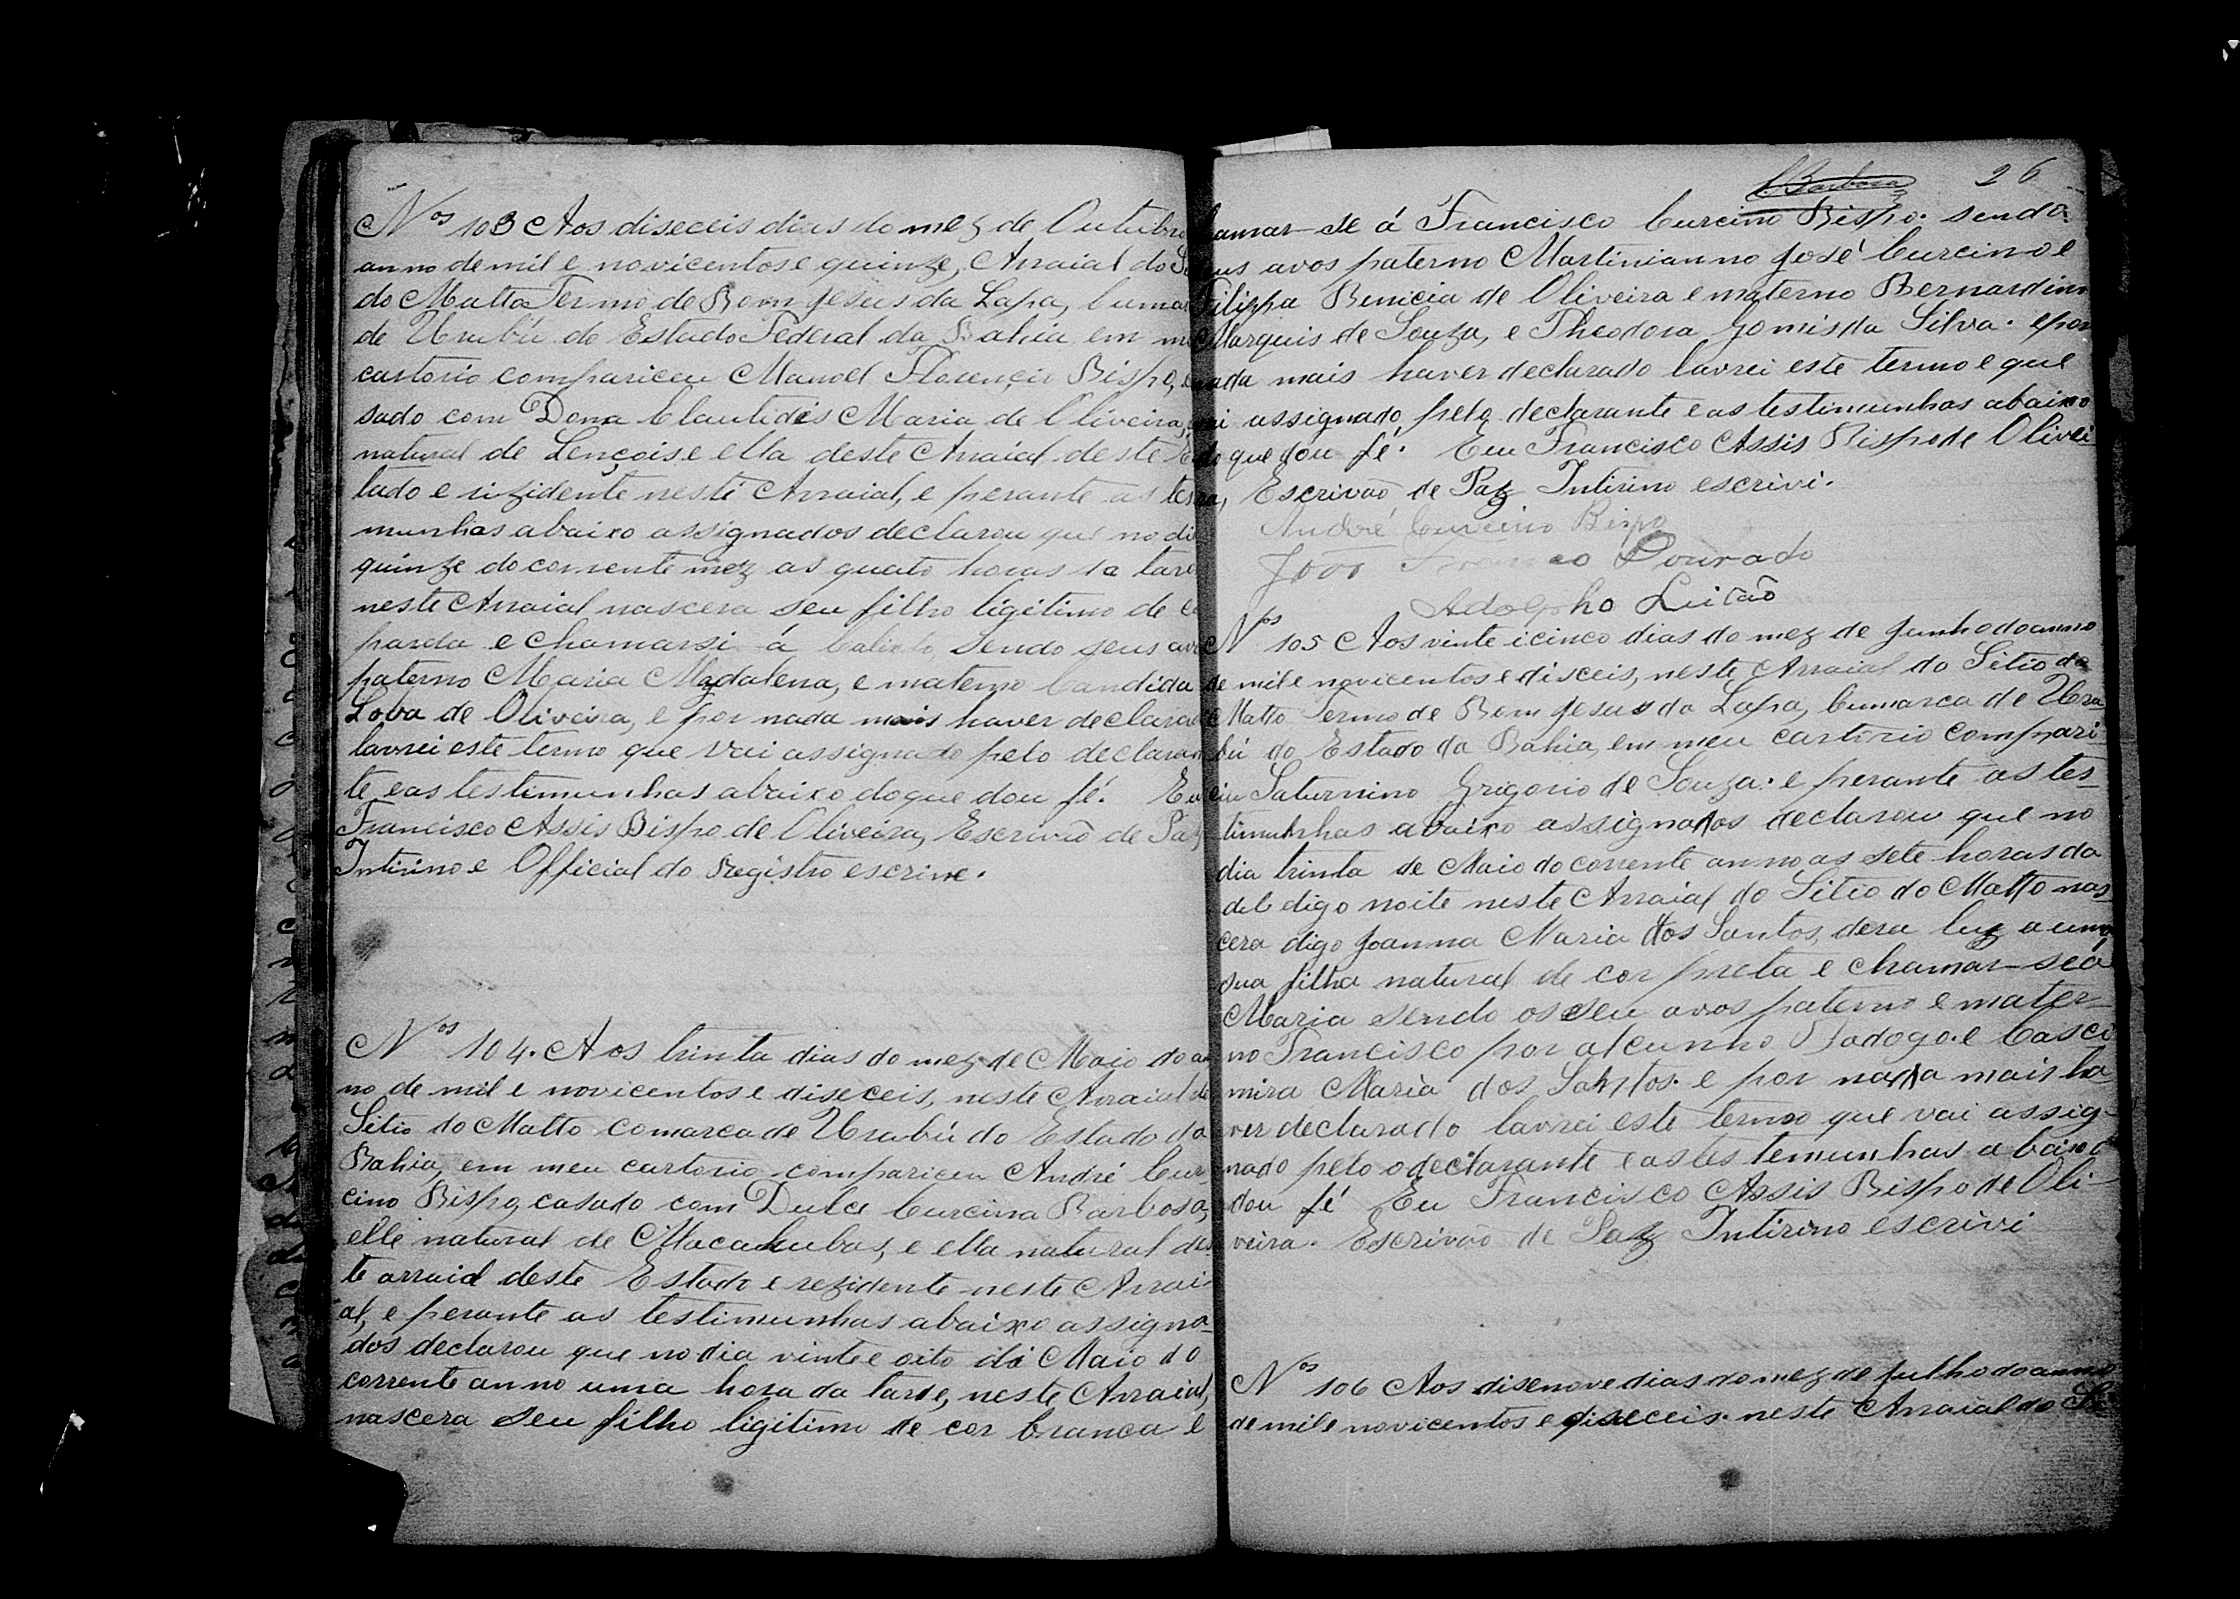 Nos 103 Aos diseceis dias do mez de Outubro
anno de mil e novicentos e quinze, Arraial do
do Matto Termo de Bom Jesus da Lapa, Cuma
de Urubú do Estado Federal da Bahia em
cartorio compariceu Manoel Florencio Bispo,
sado com Dona Clautides Maria de Oliveira,
natural de Lençois e ella deste Arraial deste
tado e rizidente neste Arraial, e perante as tes
munhas abaixo assignados declarou que no di
quinze do corrente mez as quato horas da tar
neste Arraial nascera seu filho ligitimo de
parda e chamarsi á Calixto, sendo seus
paterno Maria Magdalena, e materno Candida
Loba de Oliveira, e por nada mais haver declara
lavrei este termo que vai assignado pelo declaran
te e as testimunhas abaixo do que dou fé. Eu
Francisco Assis Bispo de Oliveira, Escrivão de Paz
Intirino e Official do Registro escrive.
Nos 104. Aos trinta dias do mez de Maio do an
no de mil e novicentos e diseceis, neste Arraial do
Sitio do Matto comarca de Urubú do Estado da
Bahia, em meu cartorio compariceu André Cur
cino Bispo, casado com Dulce Curcina Barbosa,
elle natural de Macahubas, e ella natural des
te arraial deste Estado e rezidente neste Arrai
al, e perante as testimunhas abaixo assigna
dos declarou que no dia vinte e oito de Maio do
corrente anno uma hora da tarde, neste Arraial,
nascera seu filho ligitimo de cor branca e
Barbosa 26
hamar-se á Francisco Curcino Bispo. sendo
eus avos paterno Martinianno José Curcino e
Filippa Benicia de Oliveira e materno Bernardino
Marquis de Souza, e Theodora Gomis da Silva. e por
nada mais haver declarado lavrei este termo e que
vai assignado pelo declarante e as testimunhas abaixo
do que dou fé. Eu Francisco Assis Bispo de Olivei
ra, Escrivão de Paz Intirino escrivi.
André Curcino Bispo
João Franco Dourado
Adolpho Leitão
Nos 105 Aos vinte i cinco dias do mez de Junho do anno
de mil e novicentos e disceis, neste Arraial do Sitio do
Matto Termo de Bom Jesus da Lapa, Cumarca de Uru
bú do Estado da Bahia, em meu cartorio compari
ceu Saturnino Grigorio de Souza. e perante as tes
timunhas abaixo assignados declarou que no
dia trinta de Maio do corrente anno as sete horas da
del digo noite neste Arraial do Sitio do Matto nas
cera digo Joanna Maria dos Santos, dera luz a uma
sua filha natural de cor preta e chamar-se á
Maria sendo os seu avos paterno e mater
no Francisco por alcunho e Casci
mira Maria dos Santos. e por nada mais ha
ver declarado lavrei este termo que vai assig
nado pelo o declarante e as testemunhas abaixo
dou fé Eu Francisco Assis Bispo de Oli
veira. Escrivão de Paz Intirino escrivi
Nos 106 Aos disenove dias do mez de Julho do anno
de mil e novicentos e diseceis. neste Arraial do Si